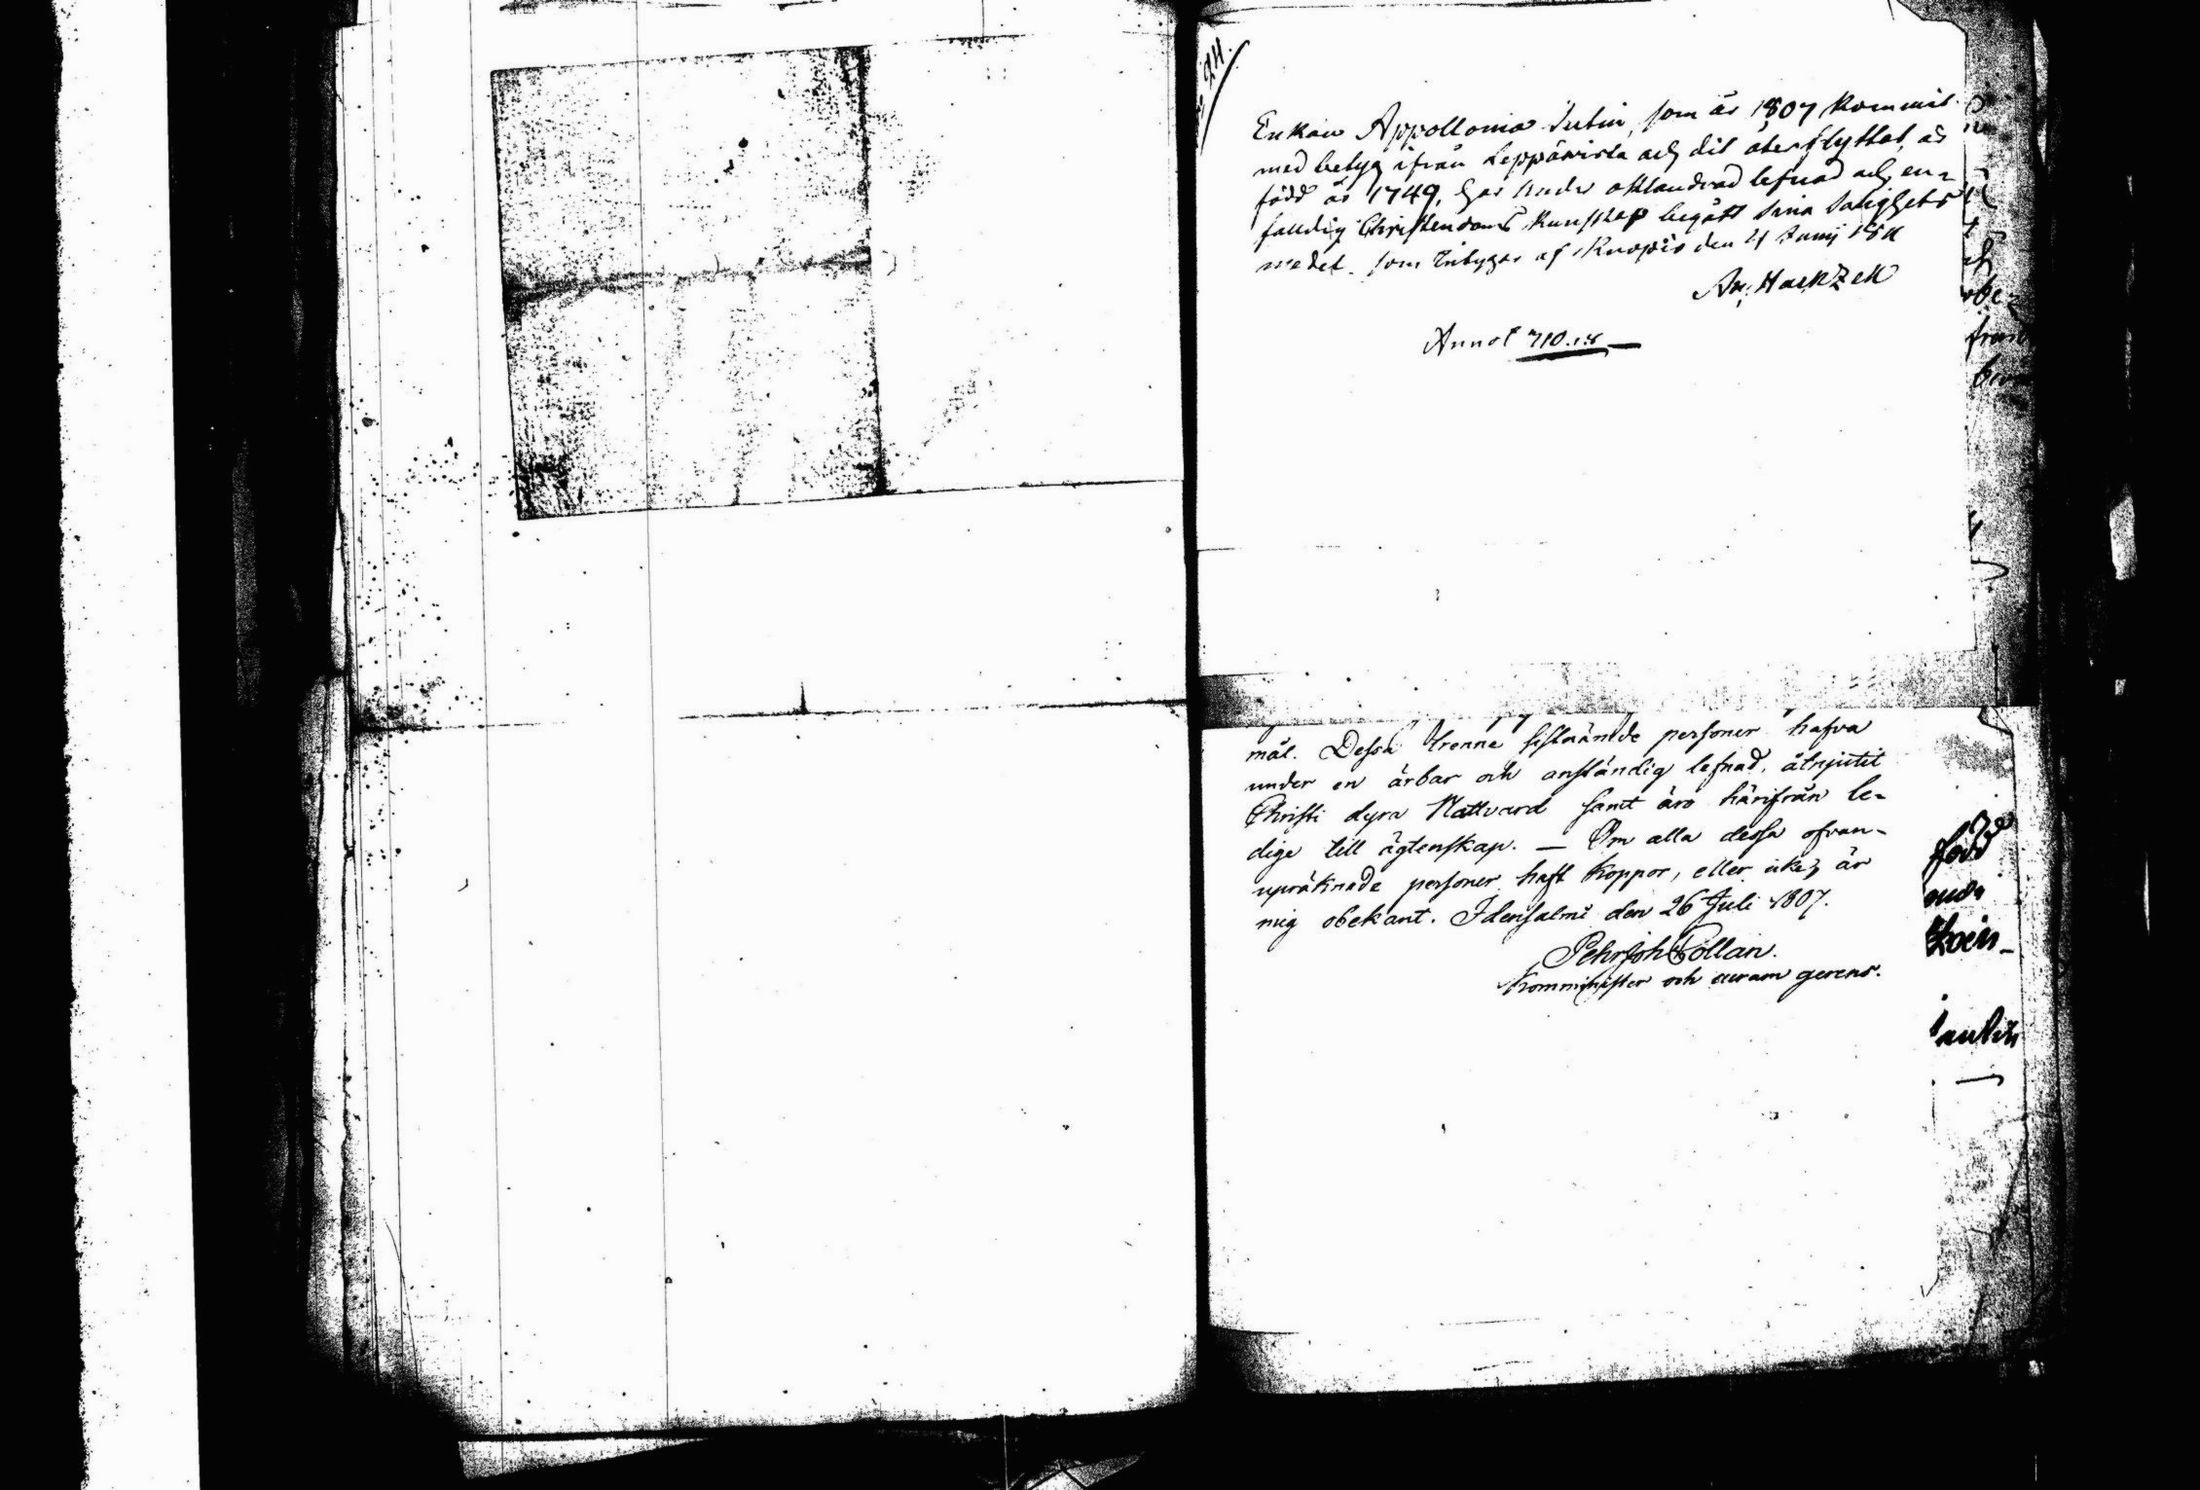 24.
Enkan Appollonia Iutin, som år 1807 kommit
med betyg ifrån Leppävirta och dit återflyttat, är
född år 1749, har under oklandrad lefnad och en=
faldig Christendoms kunskap begått sina Salighets
medel. som Intygar af Kuopio den 21 Junij 1811
Annot 710.
mål. Dessa trenne sistnämde personer hafva
under en ärbar och anständig lefnad, åtnjutit
Christi dyra Nattvard samt äro härifrån le=
dige till ägtenskap. — Om alla dessa ofvan-
upräknade personer haft koppor, eller icke, är
mig obekant. Idensalmi den 26 Juli 1807.
Pehr Joh Pollan.
Komminister och curam gerens.
född